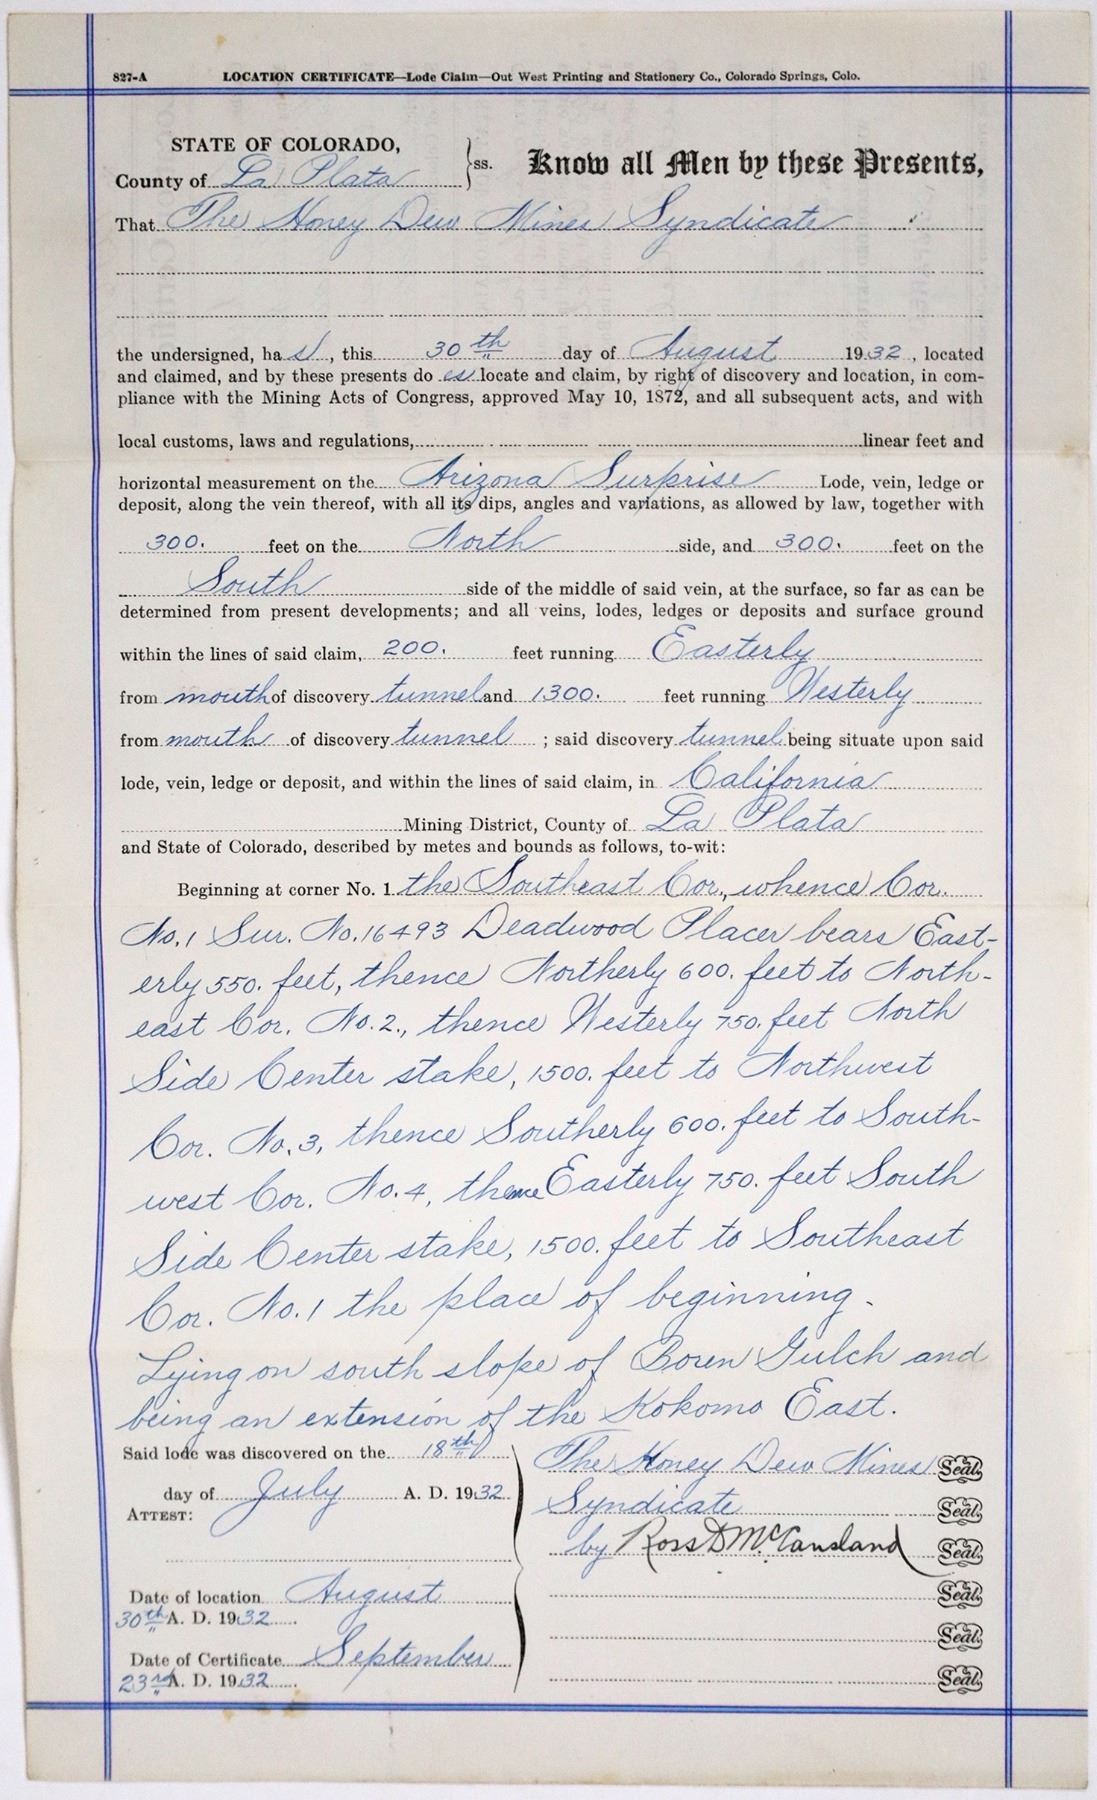 827-A LOCATION CERTIFICATE—Lode Claim—Out West Printing and Stationery Co., Colorado Springs, Colo.
STATE OF COLORADO,
County of La Plata } ss. Know all Men by these Presents,
That The Honey Dew Mines Syndicate
the undersigned, ha s, this 30th day of August 1932, located
and claimed, and by these presents do es locate and claim, by right of discovery and location, in com-
pliance with the Mining Acts of Congress, approved May 10, 1872, and all subsequent acts, and with
local customs, laws and regulations, linear feet and
horizontal measurement on the Arizona Surprise Lode, vein, ledge or
deposit, along the vein thereof, with all its dips, angles and variations, as allowed by law, together with
300. feet on the North side, and 300. feet on the
South side of the middle of said vein, at the surface, so far as can be
determined from present developments; and all veins, lodes, ledges or deposits and surface ground
within the lines of said claim, 200. feet running Easterly
from mouth of discovery tunnel and 1300. feet running Westerly
from mouth of discovery tunnel ; said discovery tunnel being situate upon said
lode, vein, ledge or deposit, and within the lines of said claim, in California
Mining District, County of La Plata
and State of Colorado, described by metes and bounds as follows, to-wit:
Beginning at corner No. 1 the Southeast Cor., whence Cor.
No. 1 Sur. No. 16493 Deadwood Placer bears East-
erly 550. feet, thence Northerly 600. feet to North-
east Cor. No. 2., thence Westerly 750. feet North
Side Center stake, 1500. feet to Northwest
Cor. No. 3, thence Southerly 600. feet to South-
west Cor. No. 4, thence Easterly 750. feet South
Side Center stake, 1500. feet to Southeast
Cor. No. 1 the place of beginning.
Lying on south slope of Boren Gulch and
being an extension of the Kokomo East.
Said lode was discovered on the 18th
day of July A. D. 1932
ATTEST:
The Honey Dew Mines Seal.
Syndicate Seal.
by Ross D McCausland Seal.
Seal.
Seal.
Seal.
Date of location August
30th A. D. 1932
Date of Certificate September
23rd A. D. 1932